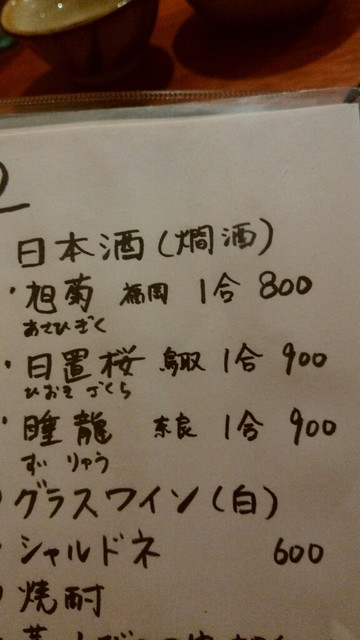 日本酒(燗酒)
・旭菊 福岡 1合 800
あさひぎく
・日置桜 鳥取 1合 900
ひおきざくら
・睡龍 奈良 1合 900
ずいりゅう
グラスワイン(白)
・シャルドネ 600
焼酎